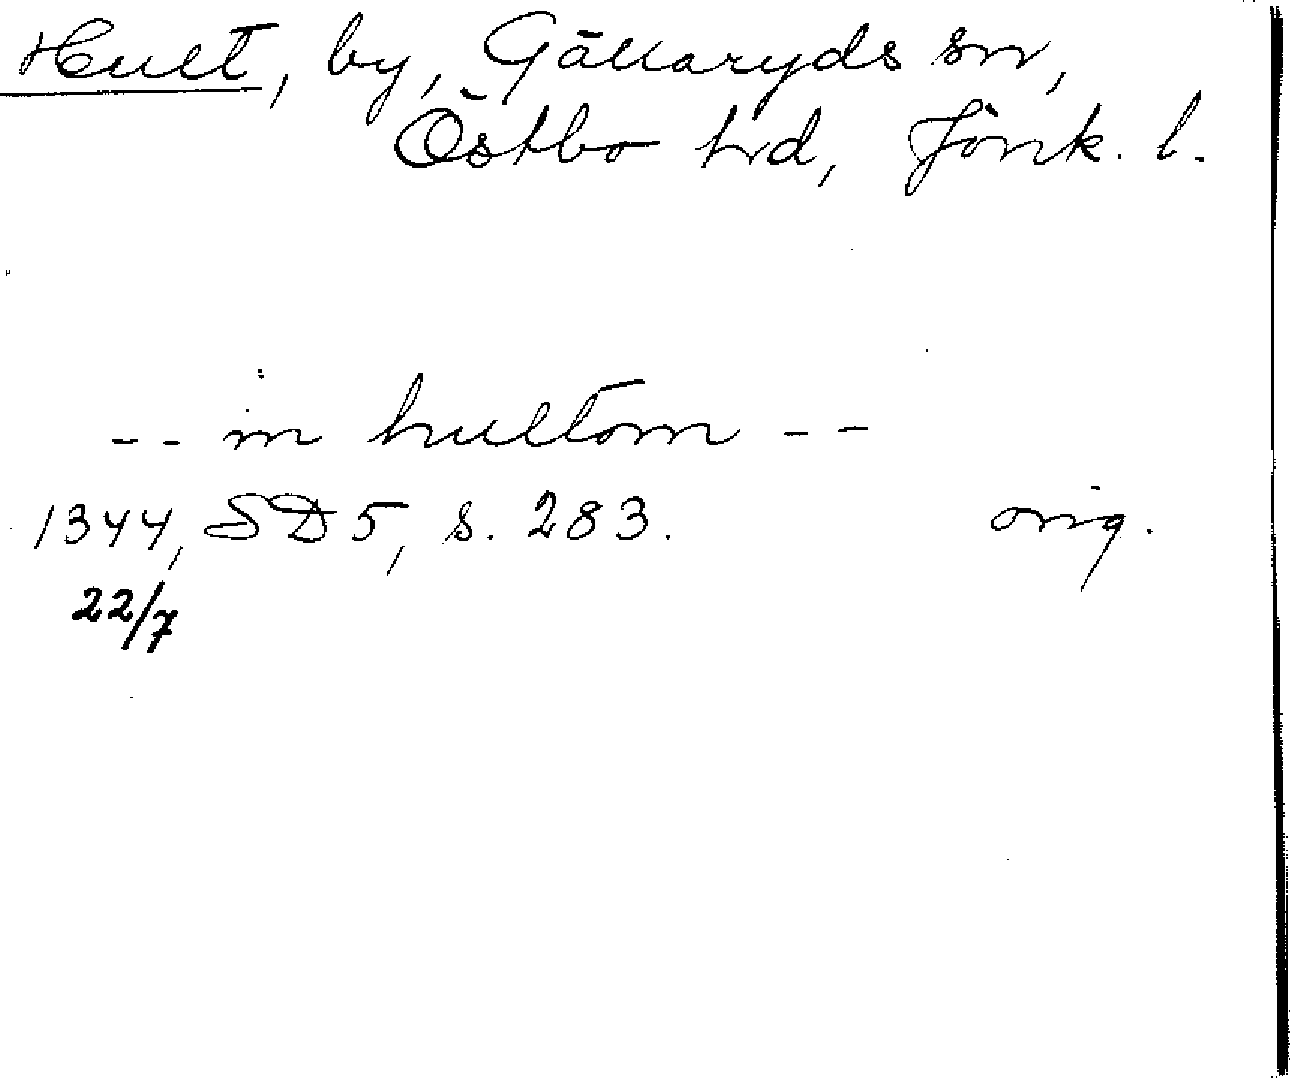 Hult, by, Gällaryds sn,
Östbo hd, Jönk. l.
-- in hultom --
1344, SD 5, s. 283. orig.
22/7